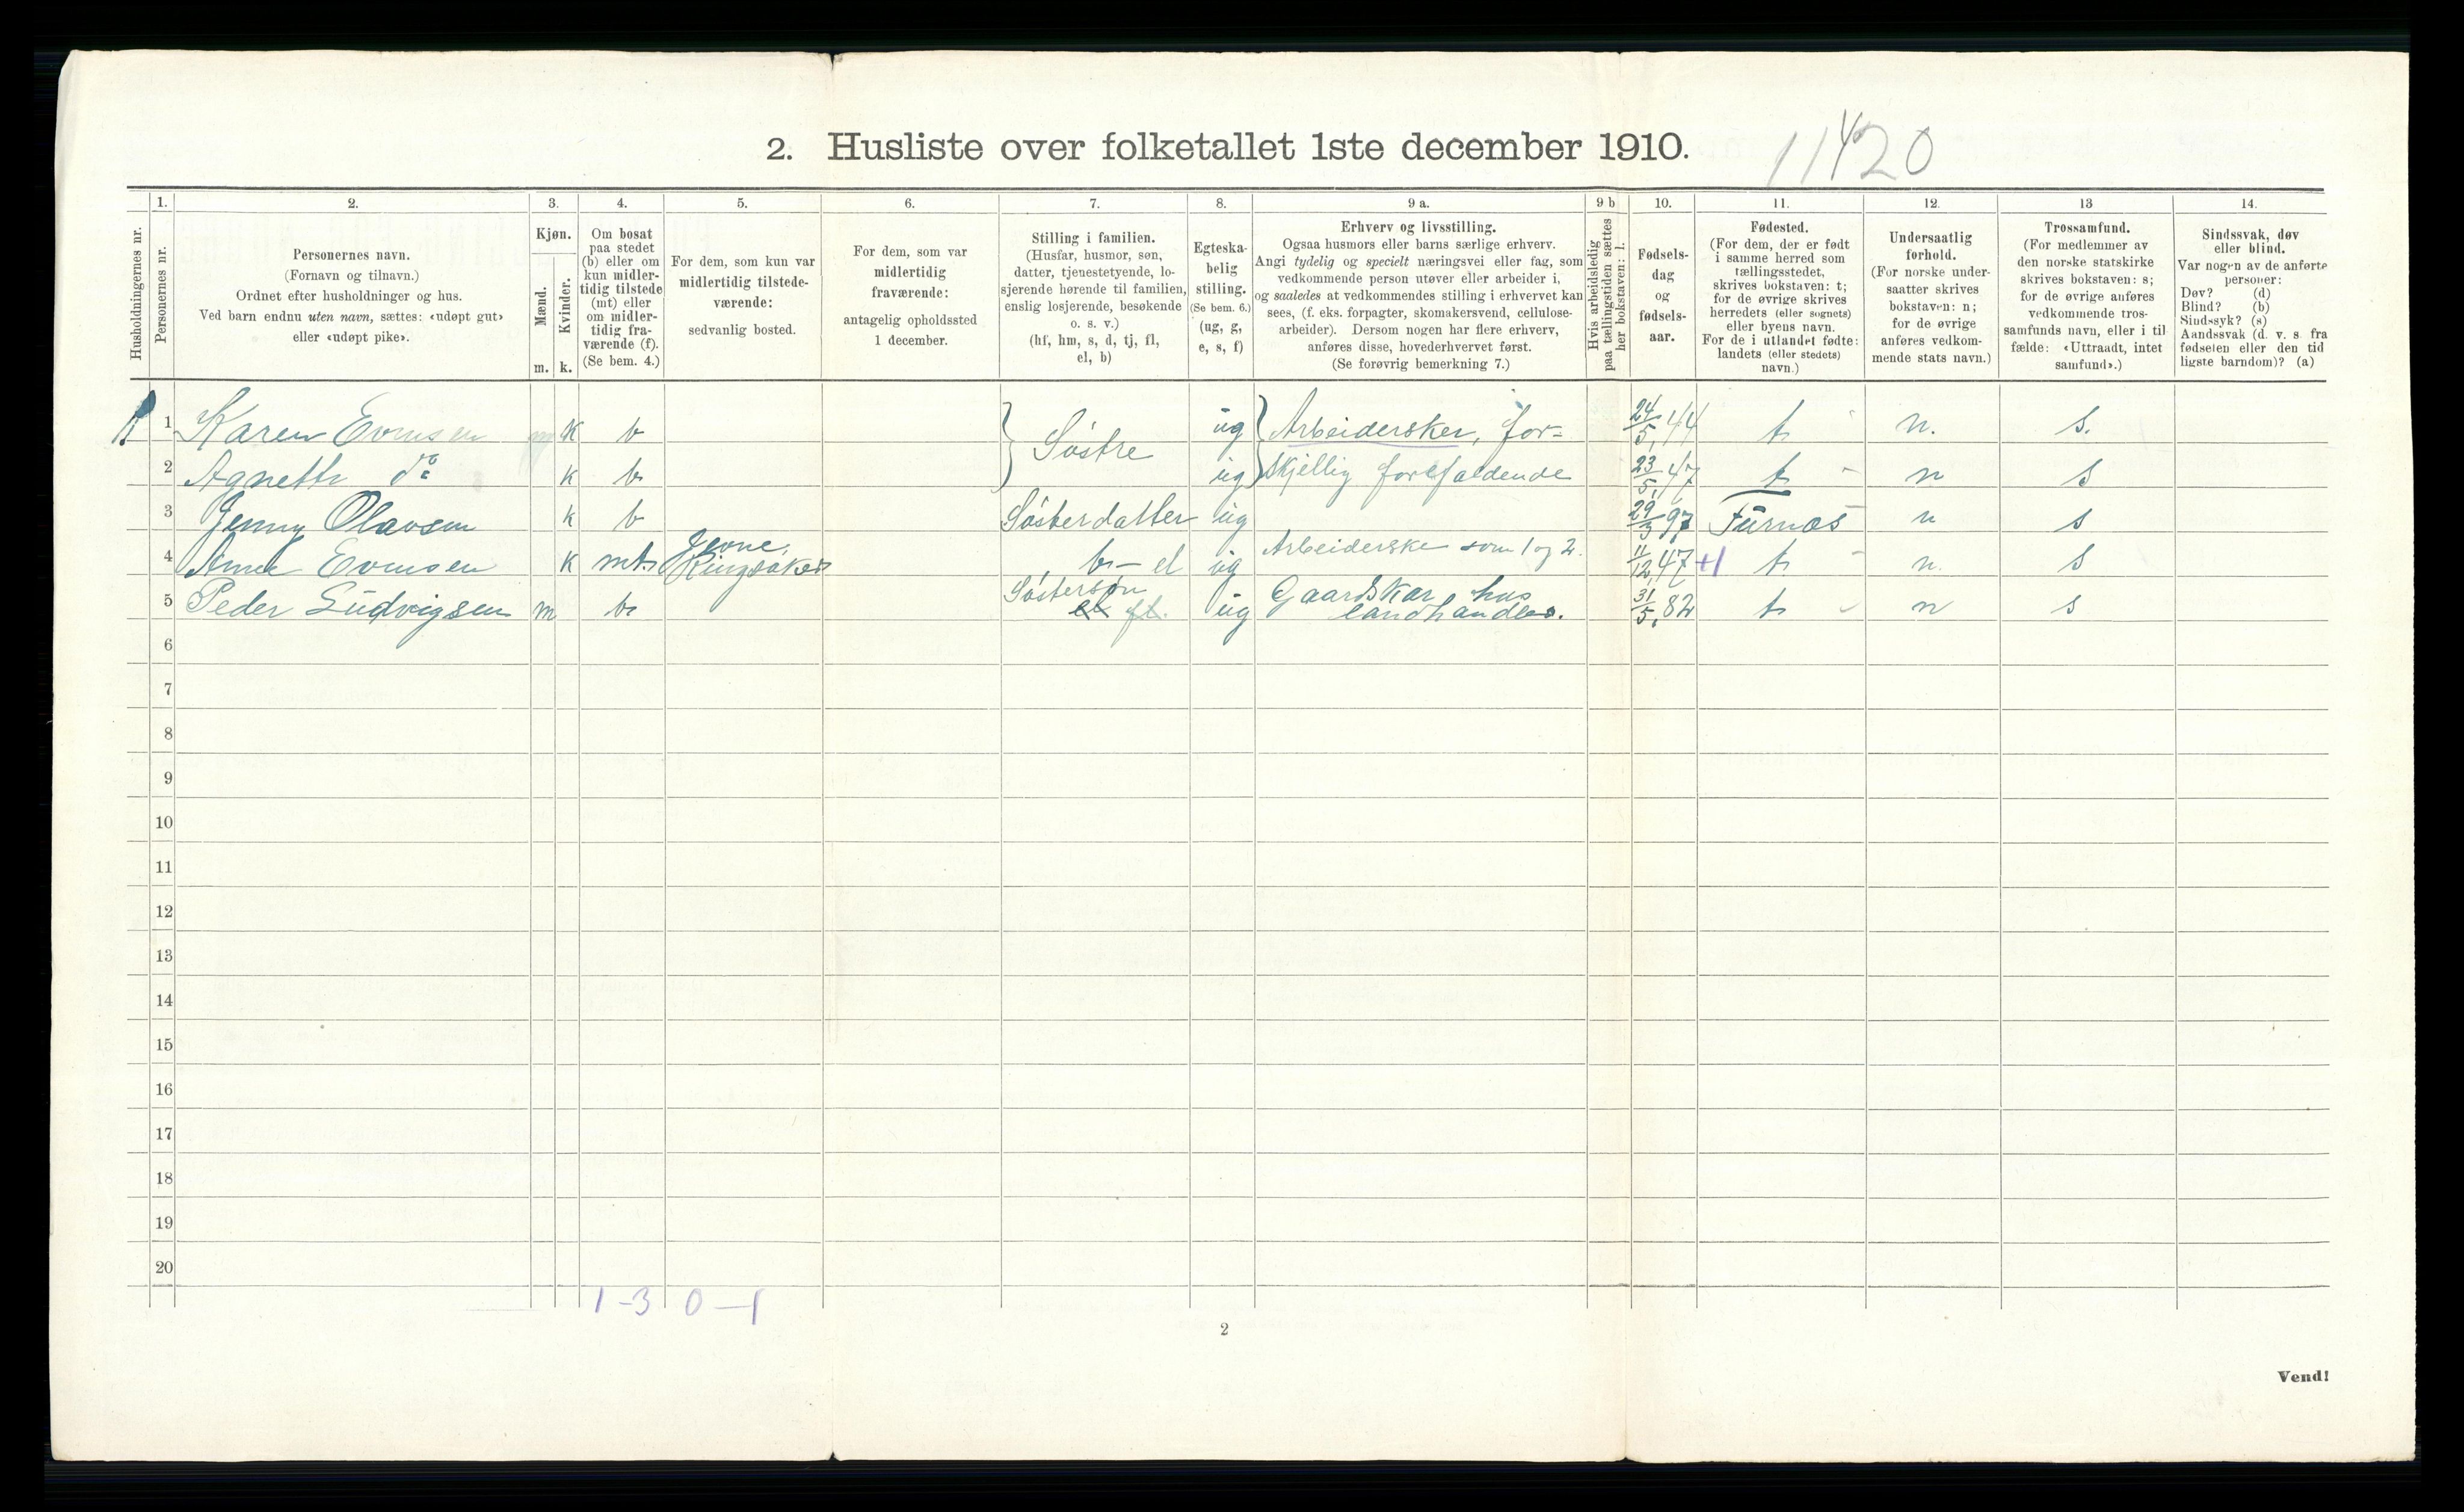 2. Husliste over folketallet 1ste december 1910.
11420
Husholdningernes nr.
1.
Personernes nr.
2.
Personernes navn.
(Fornavn og tilnavn.)
Ordnet efter husholdninger og hus.
Ved barn endnu uten navn, sættes: «udøpt gut»
eller «udøpt pike».
3.
Kjøn.
Mænd.
Kvinder.
m. k.
4.
Om bosat
paa stedet
(b) eller om
kun midler-
tidig tilstede
(mt) eller
om midler-
tidig fra-
værende (f).
(Se bem. 4.)
5.
For dem, som kun var
midlertidig tilstede-
værende:
sedvanlig bosted.
6.
For dem, som var
midlertidig
fraværende:
antagelig opholdssted
1 december.
7.
Stilling i familien.
(Husfar, husmor, søn,
datter, tjenestetyende, lo-
sjerende hørende til familien,
enslig losjerende, besøkende
o. s. v.)
(hf, hm, s, d, tj, fl,
el, b)
8.
Egteska-
belig
stilling.
(Se bem. 6.)
(ug, g,
e, s, f)
9 a.
Erhverv og livsstilling.
Ogsaa husmors eller barns særlige erhverv.
Angi tydelig og specielt næringsvei eller fag, som
vedkommende person utøver eller arbeider i,
og saaledes at vedkommendes stilling i erhvervet kan
sees, (f. eks. forpagter, skomakersvend, cellulose-
arbeider). Dersom nogen har flere erhverv,
anføres disse, hovederhvervet først.
(Se forøvrig bemerkning 7.)
9 b
Hvis arbeidsledig
paa tællingstiden sættes
her bokstaven: l.
10.
Fødsels-
dag
og
fødsels-
aar.
11.
Fødested.
(For dem, der er født
i samme herred som
tællingsstedet,
skrives bokstaven: t;
for de øvrige skrives
herredets (eller sognets)
eller byens navn.
For de i utlandet fødte:
landets (eller stedets)
navn.)
12.
Undersaatlig
forhold.
(For norske under-
saatter skrives
bokstaven: n;
for de øvrige
anføres vedkom-
mende stats navn.)
13
Trossamfund.
(For medlemmer av
den norske statskirke
skrives bokstaven: s;
for de øvrige anføres
vedkommende tros-
samfunds navn, eller i til
fælde: «Uttraadt, intet
samfund».)
14.
Sindssvak, døv
eller blind.
Var nogen av de anførte
personer:
Døv? (d)
Blind? (b)
Sindssyk? (s)
Aandssvak (d. v. s. fra
fødselen eller den tid
ligste barndom)? (a)
1 Karen Evensen k b Søstre ug Arbeidersker, for- 24/5,44 t n. s.
2 Agnethe do k b ug skjellig forefaldende 23/5,47 t n s
3 Jenny Olavsen k b Søsterdatter ug 29/3 97 Furnæs n s
4 Anne Evensen k mt. Jevne, Ringsaker b - el ug Arbeiderske som 1 og 2. 11/12,47 +1 t n. s
5 Peder Ludvigsen m b Søstersøn el fl. ug Gaardskar hus landhandler. 31/5,82 t n s
6
7
8
9
10
11
12
13
14
15
16
17
18
19
20
1 - 3 0 - 1
2
Vend!